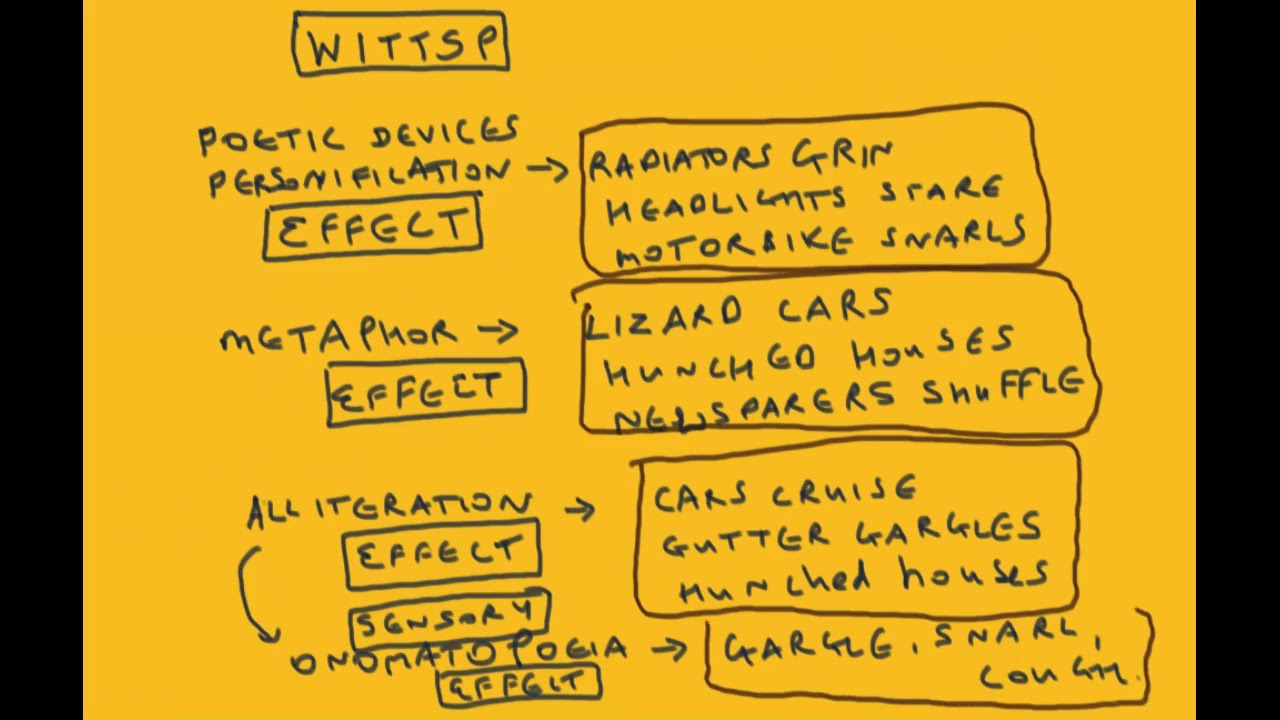 WITTSP
POETIC DEVICES
PERSONIFILATION → RADIATORS GRIN
EFFECT
HEADLIGHTS STARE
MOTORBIKE SNARLS
METAPHOR → LIZARD CARS
EFFECT
HUNCHED HOUSES
NEWSPAPERS SHUFFLE
ALLITERATION → CARS CRUISE
EFFECT
GUTTER GARGLES
HUNChed houses
SENSORY
ONOMATOPOEIA → GARGLE, SNARL,
COUGH.
EFFECT